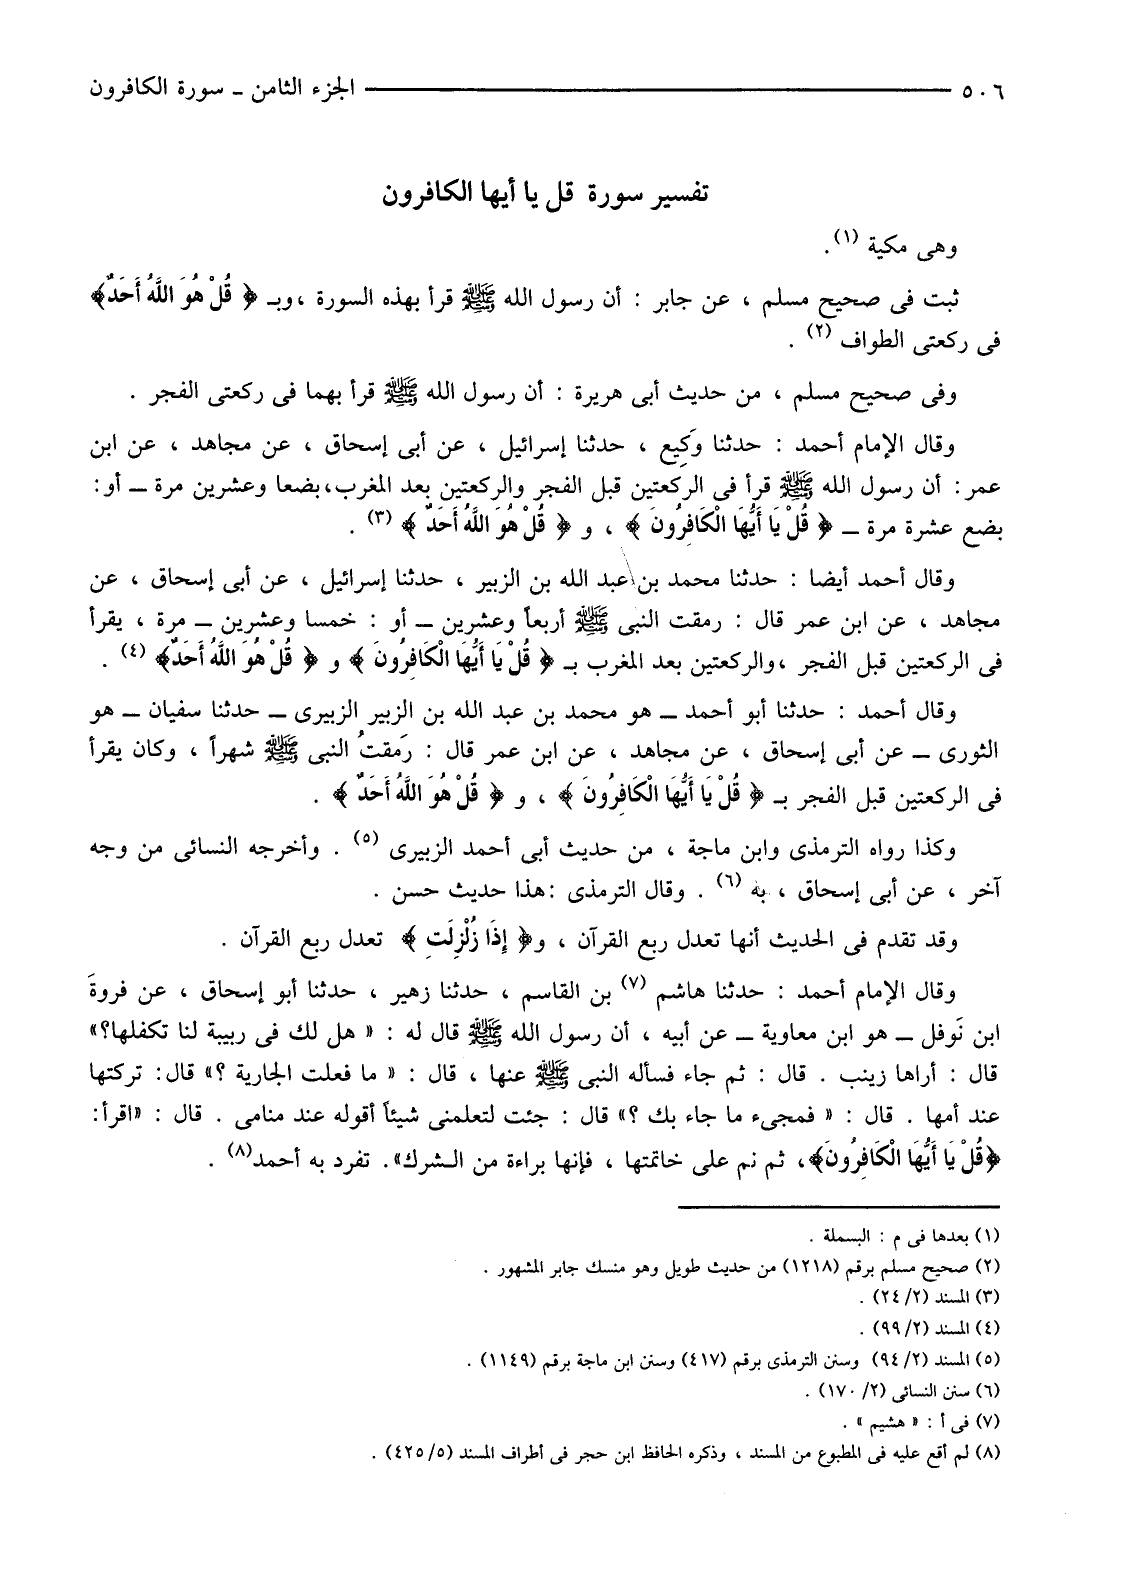 ٥٠٦ الجزء الثامن ـ سورة الكافرون
تفسير سورة قل يا أيها الكافرون
وهى مكية (١).
ثبت فى صحيح مسلم ، عن جابر : أن رسول الله ﷺ قرأ بهذه السورة ، وبـ ﴿ قُلْ هُوَ اللَّهُ أَحَدٌ﴾
فى ركعتى الطواف (٢) .
وفى صحيح مسلم ، من حديث أبى هريرة : أن رسول الله ﷺ قرأ بهما فى ركعتى الفجر .
وقال الإمام أحمد : حدثنا وَكِيع ، حدثنا إسرائيل ، عن أبى إسحاق ، عن مجاهد ، عن ابن
عمر : أن رسول الله ﷺ قرأ فى الركعتين قبل الفجر والركعتين بعد المغرب، بضعا وعشرين مرة ــ أو :
بضع عشرة مرة ــ ﴿ قُلْ يَا أَيُّهَا الْكَافِرُونَ ﴾ ، و ﴿ قُلْ هُوَ اللَّهُ أَحَدٌ ﴾ (٣) .
وقال أحمد أيضا : حدثنا محمد بن عبد الله بن الزبير ، حدثنا إسرائيل ، عن أبى إسحاق ، عن
مجاهد ، عن ابن عمر قال : رمقت النبى ﷺ أربعاً وعشرين ــ أو : خمسا وعشرين ــ مرة ، يقرأ
فى الركعتين قبل الفجر ، والركعتين بعد المغرب بـ ﴿ قُلْ يَا أَيُّهَا الْكَافِرُونَ ﴾ و ﴿ قُلْ هُوَ اللَّهُ أَحَدٌ﴾ (٤) .
وقال أحمد : حدثنا أبو أحمد ــ هو محمد بن عبد الله بن الزبير الزبيرى ــ حدثنا سفيان ــ هو
الثورى ــ عن أبى إسحاق ، عن مجاهد ، عن ابن عمر قال : رَمقتُ النبى ﷺ شهراً ، وكان يقرأ
فى الركعتين قبل الفجر بـ ﴿ قُلْ يَا أَيُّهَا الْكَافِرُونَ ﴾ ، و ﴿ قُلْ هُوَ اللَّهُ أَحَدٌ ﴾ .
وكذا رواه الترمذى وابن ماجة ، من حديث أبى أحمد الزبيرى (٥) . وأخرجه النسائى من وجه
آخر ، عن أبى إسحاق ، به (٦) . وقال الترمذى : هذا حديث حسن .
وقد تقدم فى الحديث أنها تعدل ربع القرآن ، و﴿ إِذَا زُلْزِلَتِ ﴾ تعدل ربع القرآن .
وقال الإمام أحمد : حدثنا هاشم (٧) بن القاسم ، حدثنا زهير ، حدثنا أبو إسحاق ، عن فروةَ
ابن نَوفل ــ هو ابن معاوية ــ عن أبيه ، أن رسول الله ﷺ قال له : « هل لك فى ربيبة لنا تكفلها؟»
قال : أراها زينب . قال : ثم جاء فسأله النبى ﷺ عنها ، قال : « ما فعلت الجارية ؟» قال : تركتها
عند أمها . قال : « فمجىء ما جاء بك ؟» قال : جئت لتعلمنى شيئاً أقوله عند منامى . قال : «اقرأ :
﴿قُلْ يَا أَيُّهَا الْكَافِرُونَ﴾، ثم نم على خاتمتها ، فإنها براءة من الشرك». تفرد به أحمد(٨) .
(١) بعدها فى م : البسملة .
(٢) صحيح مسلم برقم (١٢١٨) من حديث طويل وهو منسك جابر المشهور .
(٣) المسند (٢٤/٢) .
(٤) المسند (٩٩/٢) .
(٥) المسند (٩٤/٢) وسنن الترمذى برقم (٤١٧) وسنن ابن ماجة برقم (١١٤٩) .
(٦) سنن النسائى (١٧٠/٢) .
(٧) فى أ : « هشيم » .
(٨) لم أقع عليه فى المطبوع من المسند ، وذكره الحافظ ابن حجر فى أطراف المسند (٤٢٥/٥) .